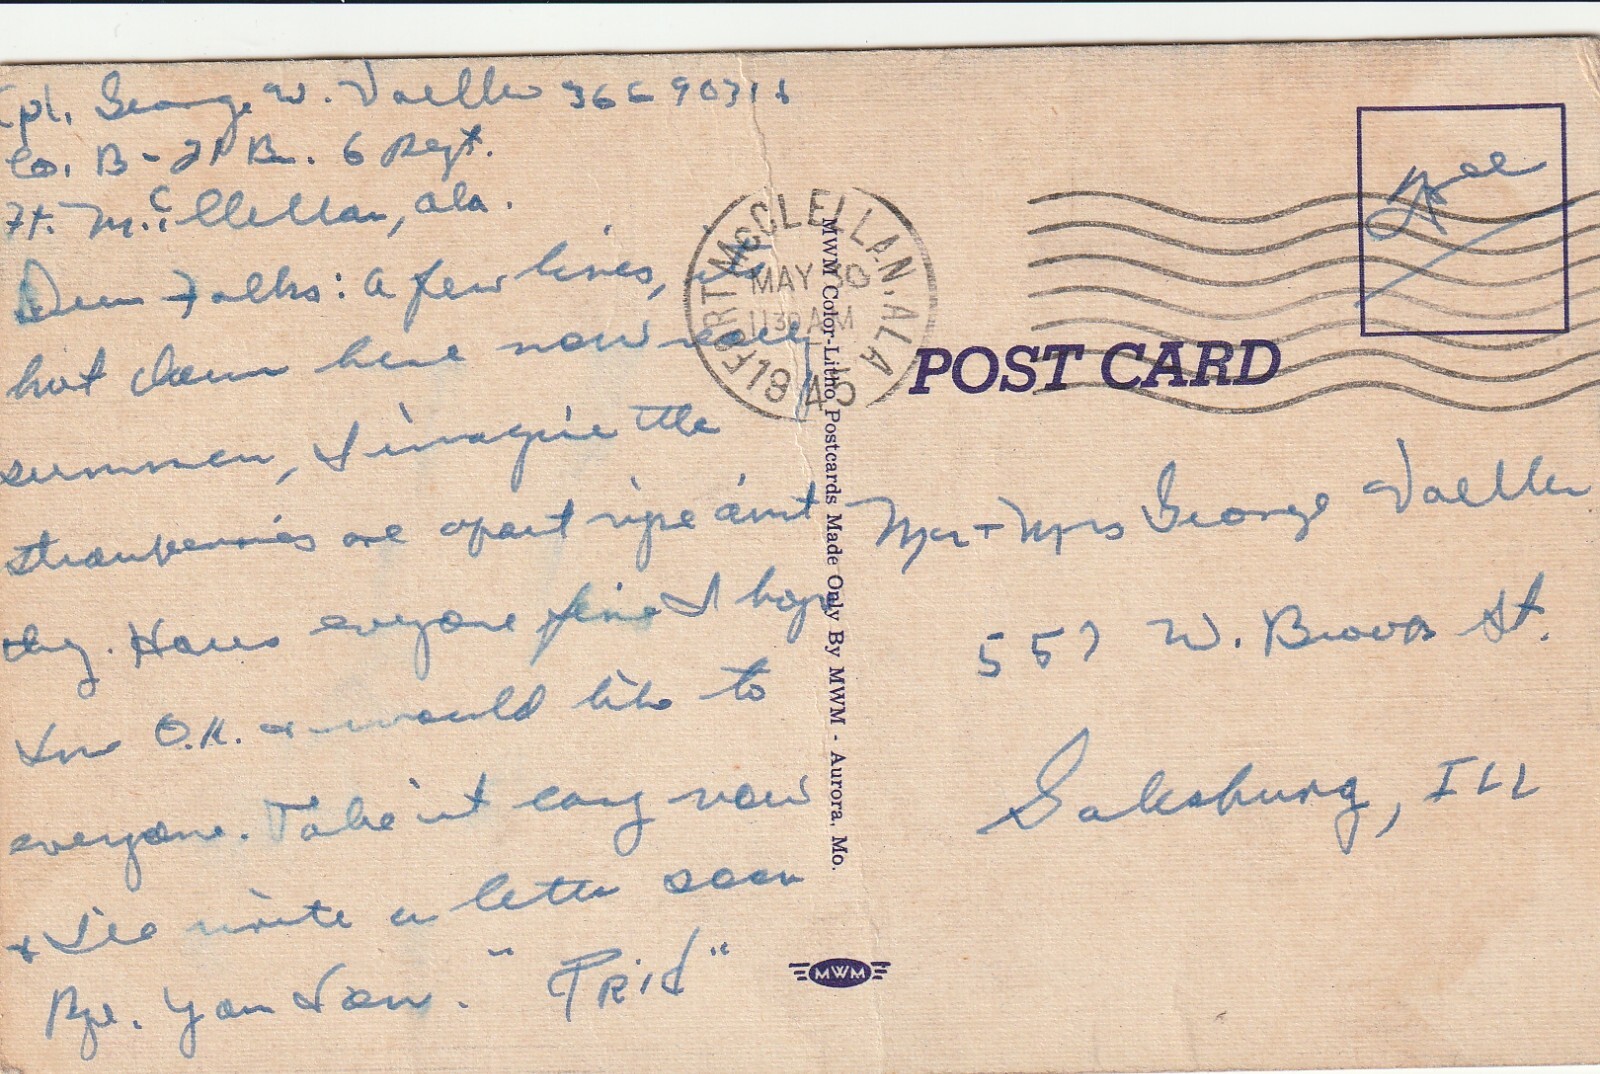 Cpl. George W. Voeller 36690318
Co. B - 21 Bn. 6 Regt.
Ft. McClellan, Ala.
Dear Folks: A few lines, its
hot down here now really
summer, I imagine the
strawberries are apart ripe ain't
they. Hows everyone fine I hope
Im O.K. + would like to
everyone. Take it easy now
+ I'll write a letter soon
Bye. Your Son. "Prid"
FORT McCLELLAN, ALA.
MAY 30
11 30 AM
1945
MWM Color-Litho Postcards Made Only By MWM - Aurora, Mo.
MWM
Free
POST CARD
Mr + Mrs George Voeller
557 W. Brooks St.
Galesburg, ILL